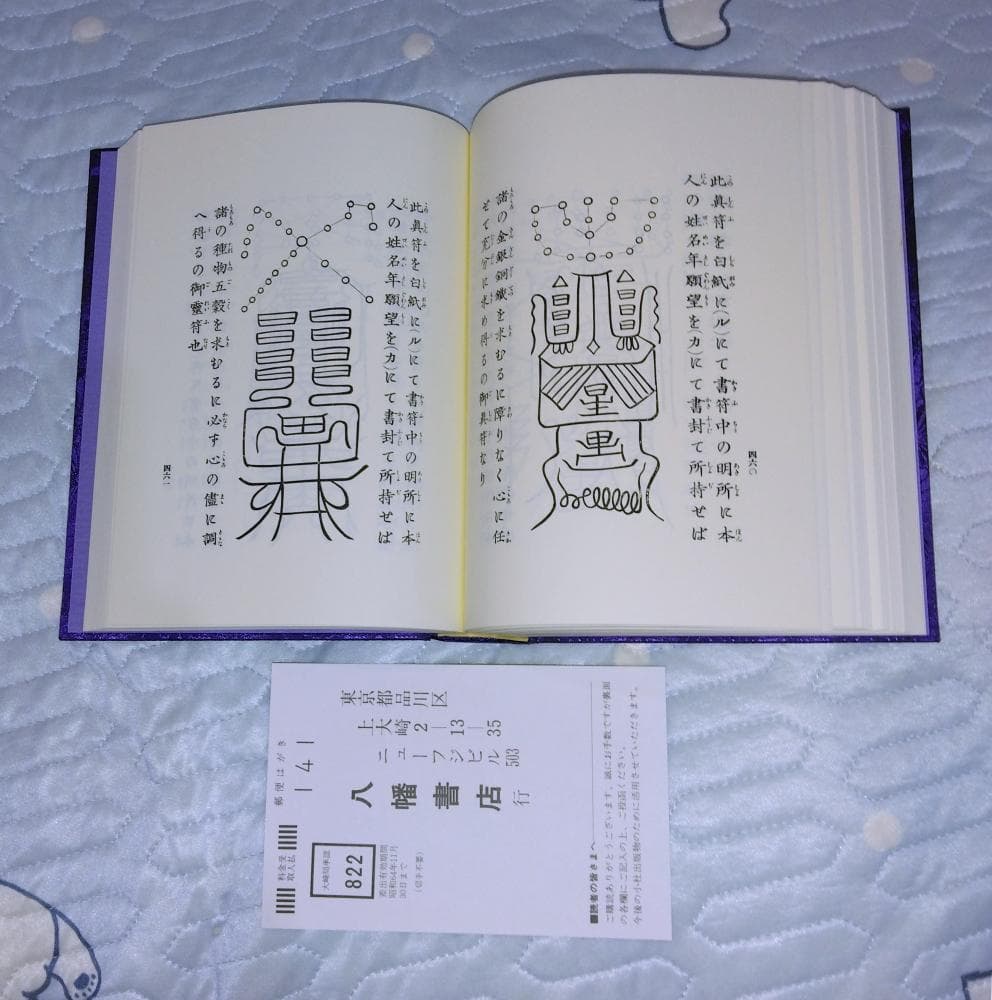 此眞符を白紙に(ル)にて書符中の明所に本
人の姓名年願望を(カ)にて書封て所持せば
星
諸の金銀銅鐵を求むるに障りなく心に任
せて充分に求め得るの御眞符なり
四六〇
此眞符を白紙に(ル)にて書符中の明所に本
人の姓名年願望を(カ)にて書封て所持せば
諸の種物五穀を求むるに必す心の儘に調
へ得るの御靈符也
四六一
郵便はがき
141
東京都品川区
上大崎2-13-35
ニューフジビル503
八幡書店 行
料金受
取人払
大崎局承認
822
差出有効期間
昭和64年11月
30日まで
(切手不要)
■読者の皆さまへ
ご購読ありがとうございます。誠にお手数ですが裏面
の各欄にご記入の上、ご投函ください。
今後の小社出版物のために活用させていただきます。